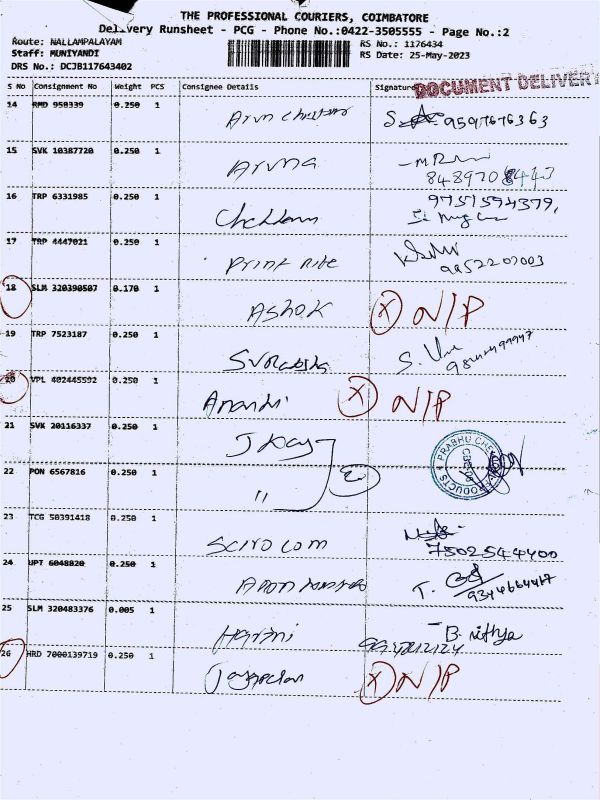 THE PROFESSIONAL COURIERS, COIMBATORE
Delivery Runsheet - PCG - Phone No.:0422-3505555 - Page No.:2
Route: NALLAMPALAYAM
Staff: MUNIYANDI
DRS No.: DCJB117643402
RS No.: 1176434
RS Date: 25-May-2023
DOCUMENT DELIVERY
S No Consignment No Weight PCS Consignee Details Signature
14 RMD 950339 0.250 1 9597676363
15 SVK 10387720 0.250 1 Aruna
16 TRP 6331985 0.250 1 9751594379,
17 TRP 4447021 0.250 1 Print Rite
9952207003
18 SLM 320390507 0.170 1 ASHOK X N/P
19 TRP 7523187 0.250 1
20 VPL 402445592 0.250 1 Anandhi X N/P
21 SVK 20116337 0.250 1 J Kay
22 PON 6567816 0.250 1 "
PRABHU CHE PRODUCTS
23 TCG 50391418 0.250 1 Sciro com
7502544400
24 UPT 6048820 0.250 1
25 SLM 320483376 0.005 1 Harini B. nithya
26 HRD 7000139719 0.250 1 X N/P